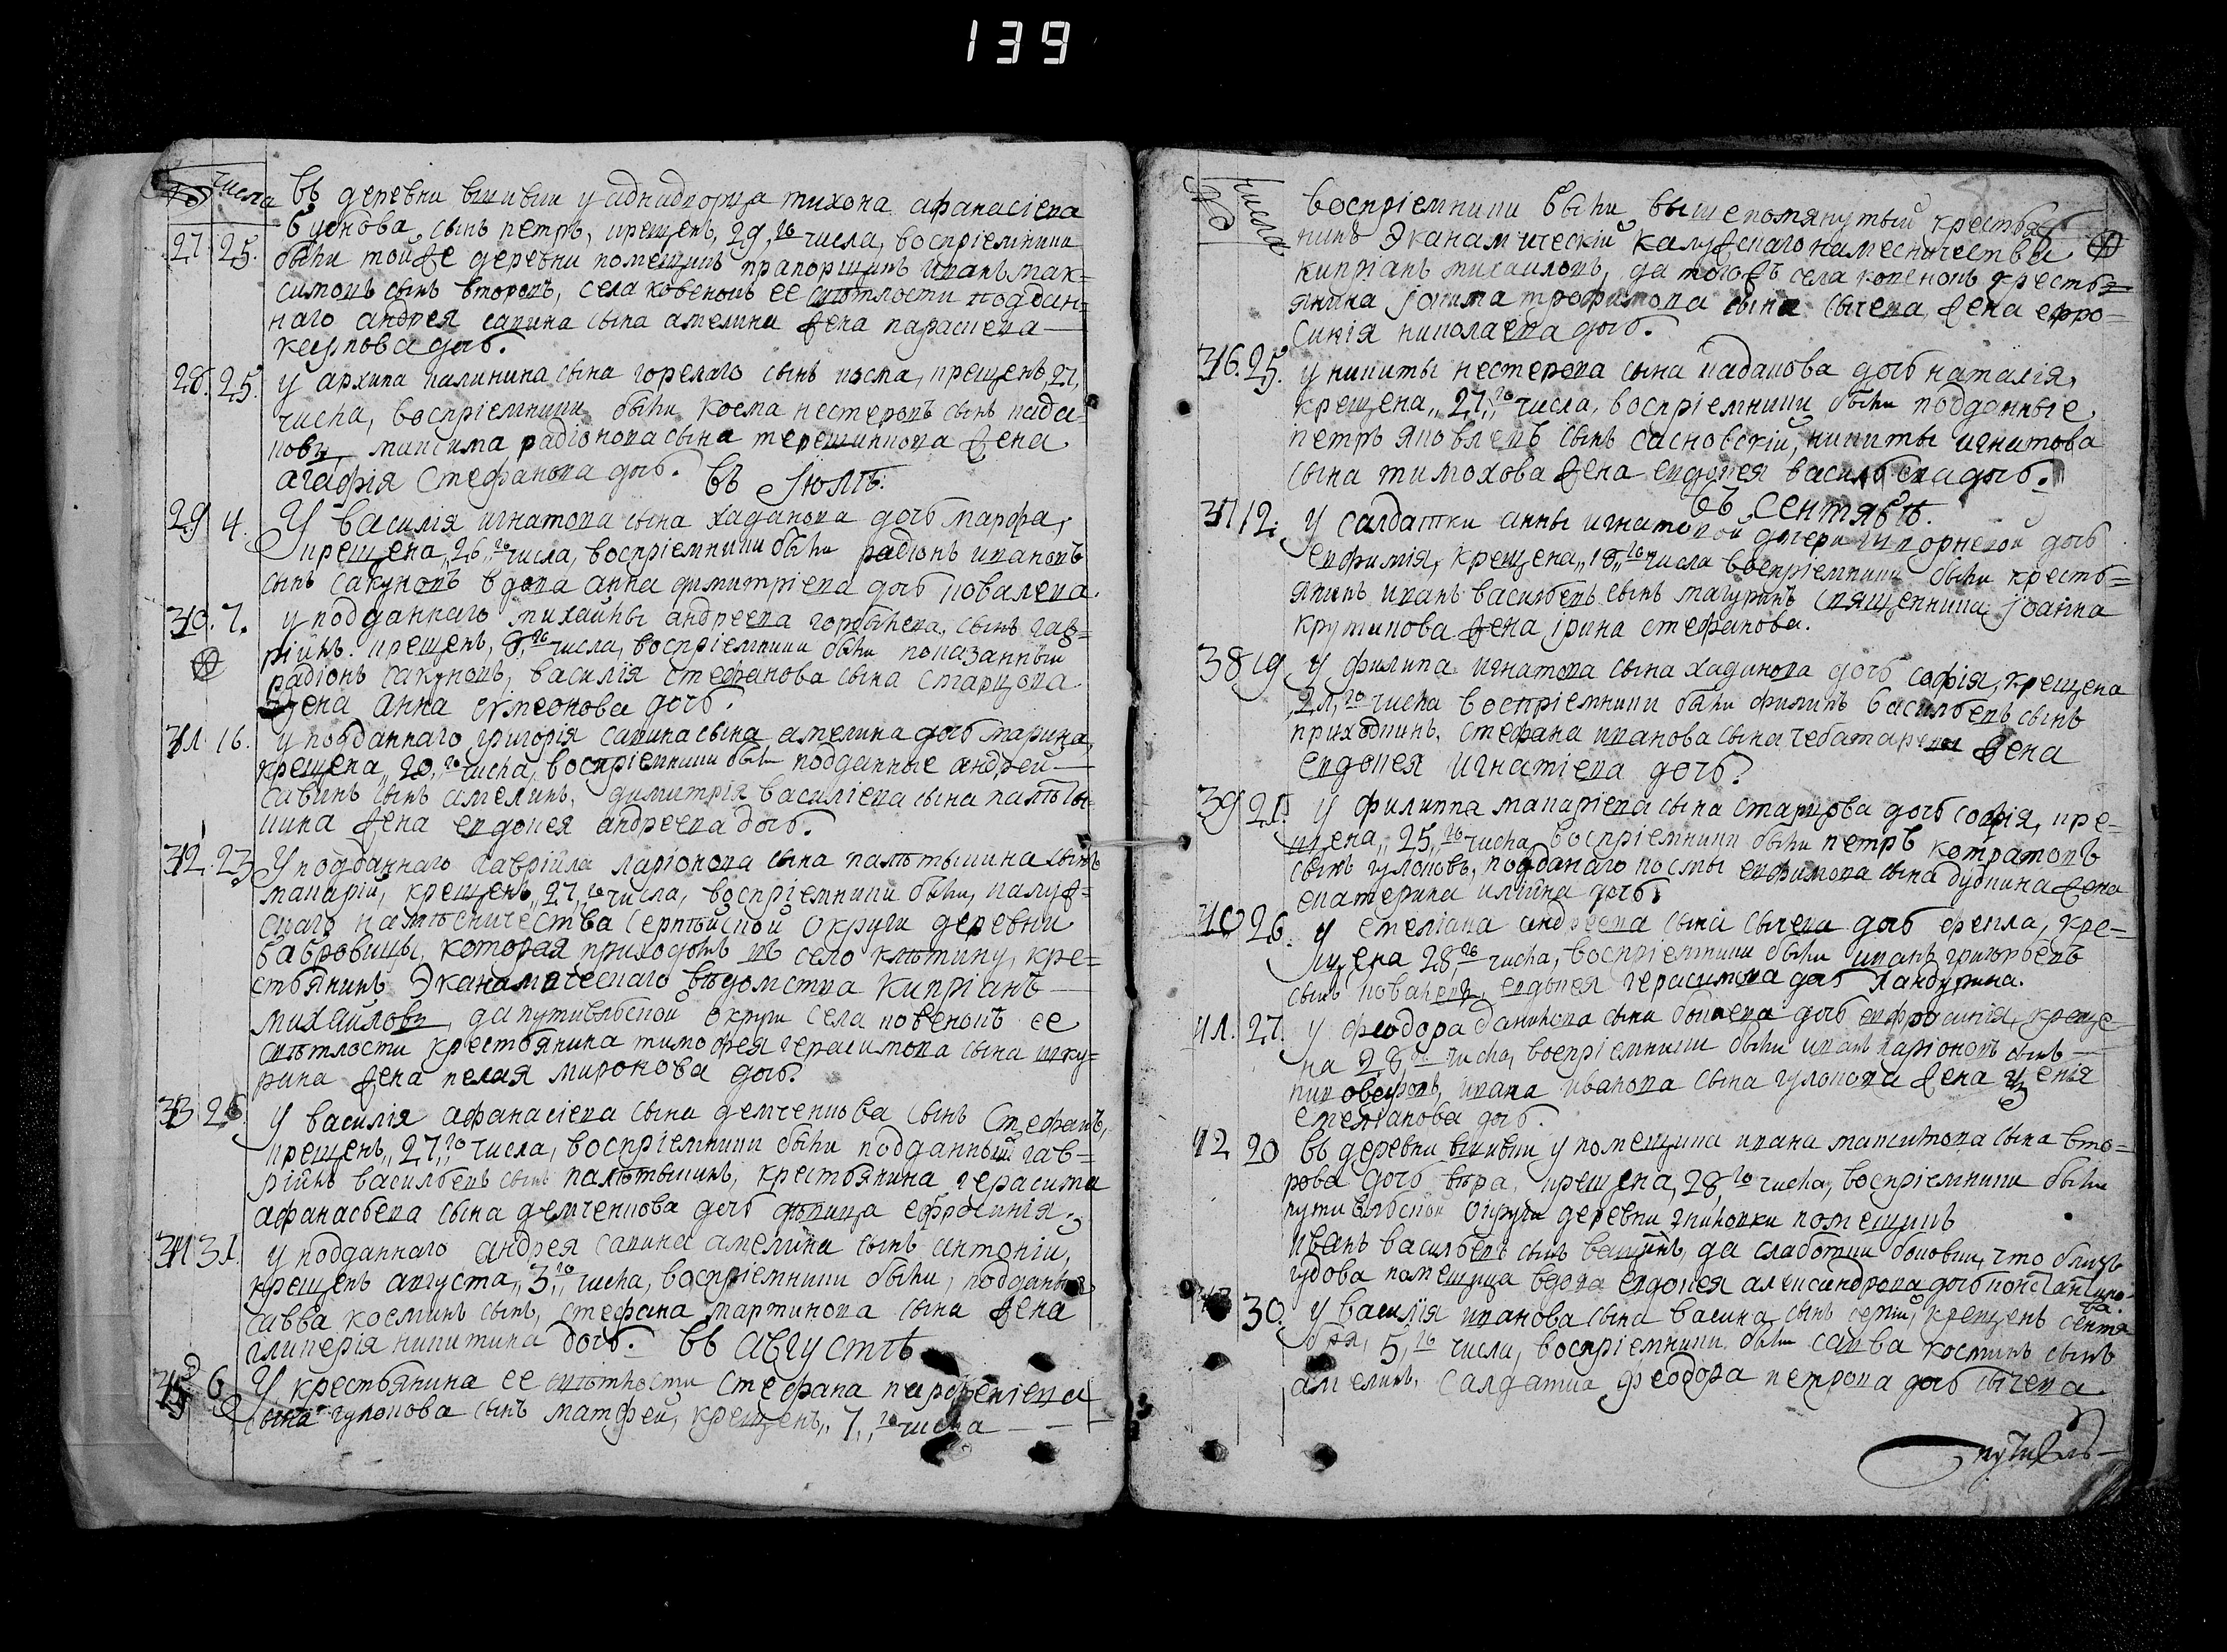 139
числа
въ деревни вшивки у аднадворца тихона афанасіева
буднова, сынъ петръ, крещенъ, 29, го числа, воспріемники
27 25. были тойже деревни помещикъ прапорщикъ иванъ мак=
симовъ сынъ второвъ, села ковенокъ ее свѣтлости поддан=
наго андрея савина сына амелина жена параскева
карпова дочь.
28. 25. у архипа калинина сына горелаго сынъ косма, крещенъ, 27,
числа, воспріемники были косма нестеровъ сынъ када=
ковъ, максима радіонова сына терешинкова жена
агафія стефанова дочь. въ Іюлѣ.
29 4. У василія игнатова сына хаданова дочь марфа,
крещена, 26, го числа, воспріемники были радіонъ ивановъ
сынъ сакуновъ вдова анна димитріева дочь ковалева.
30. 7. у подданнаго михайлы андреева горбылева, сынъ гав=
ріилъ. крещенъ, 9, го числа, воспріемники были показанный
радіонъ сакуновъ, василія стефанова сына старцова
жена анна сѵмеонова дочь.
31. 16. у подданнаго григорія савина сына амелина дочь марина,
крещена, 20, го числа, воспріемники были подданные андрей
савинъ сынъ амелинъ, димитрія василіева сына палѣты=
шина жена евдокея андреева дочь.
32. 23 У подданнаго гавріила ларіонова сына палѣтышина сынъ
макарій, крещенъ, 27, го числа, воспріемники были, калуж=
скаго намѣсничества серпѣйской округи деревни
бабровицы, которая приходомъ въ село клѣтину, кре=
стьянинъ Эканамическаго вѣдомства Кипріанъ
михайловъ, да путивльской округи села ковенокъ ее
свѣтлости крестьянина тимофея герасимова сына шку=
рина жена пелая миронова дочь.
33 26 У василія афанасіева сына демченкова сынъ стефанъ,
крещенъ, 27, го числа, воспріемники были подданный гав=
ріилъ васильевъ сынъ палѣтышинъ, крестьянина герасима
афанасьева сына демченкова дочь дѣвица ефросинія.
34 31. у подданнаго андрея савина амелина сынъ антоній,
крещенъ августа, 3, го числа, воспріемники были, подданный
савва косминъ сынъ, стефана мартинова сына жена
гликерія никитина дочь. въ августѣ
35 6 У крестьянина ее свѣтлости стефана парфеніева
сына гулокова сынъ матфей, крещенъ, 7, го числа
числа
воспріемники были, вышепомянутый крестья=
нинъ Эканамическій калужскаго намесничества
кипріанъ михаиловъ, да тогожъ села ковенокъ кресть=
янина іокима трофимова сына сычева жена ефро=
синія николаева дочь.
36. 25. у никиты нестерова сына кадакова дочь наталія,
крещена, 27, го числа, воспріемники были подданные
петръ яковлевъ сынъ сасновскій, никиты игнатова
сына тимохова жена евдокея васильева дочь.
въ сентябѣ.
37 12. у салдатки анны игнатовой дочери шкорневой дочь
евфимія, крещена, 18, го числа воспріемники были кресть=
янинъ иванъ васильевъ сынъ мачуринъ священника іоанна
крутикова жена ірина стефанова.
38 19 у филипа игнатова сына хаданова дочь софія, крещена
21, го числа воспріемники были филипъ васильевъ сынъ
приходкинъ, стефана иванова сына чебатарева жена
евдокея игнатіева дочь.
39 21. у филиппа макаріева сына старцова дочь софія, кре=
щена, 25, го числа воспріемники были петръ котратовъ
сынъ гулоковъ, подданаго космы евфимова сына дудкина жена
екатерина илійна дочь.
40 26. у емеліана андреева сына сычева дочь фекла, кре=
щена 28, го числа, воспріемники были иванъ григорьевъ
сынъ ковалевъ, евдокея герасимова дочь хандурина.
41. 27. у феодора данилова сына бойкова дочь евфросинія, креще=
на 28 го числа, воспріемники были иванъ ларіоновъ сынъ
никофоровъ, ивана иванова сына гулокова жена
емеліанова дочь.
42 20 въ деревни вшивки у помещика ивана максимова сына вто=
рова дочь вѣра, крещена, 28, го числа, воспріемники были
путивльской округи деревни помещикъ
иванъ васильевъ сынъ вашинъ, да слаботки боковки, что близь
гудова помещица вдова евдокея александрова дочь константинова.
43 30. У василія иванова сына васина сынъ сергій, крещенъ сентя=
бря, 5, го числа, воспріемники были савва косминъ сынъ
амелинъ, салдатка феодора петрова дочь сычева.
путивль